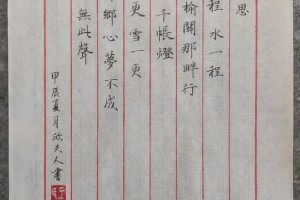 思
程 水一程
榆關那畔行
千帳燈
更 雪一更
鄉心夢不成
無此聲
甲辰夏月欣夫人書